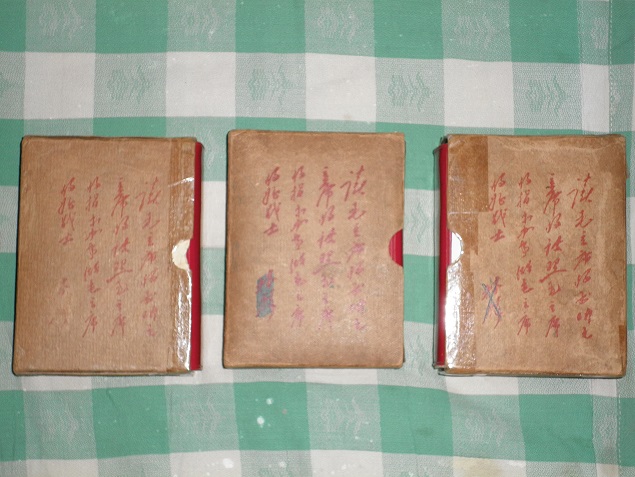 读毛主席的书听毛
主席的话照毛主席
的指示办事做毛主席
的好战士
读毛主席的书听毛
主席的话照毛主席
的指示办事做毛主席
的好战士
读毛主席的书听毛
主席的话照毛主席
的指示办事做毛主席
的好战士